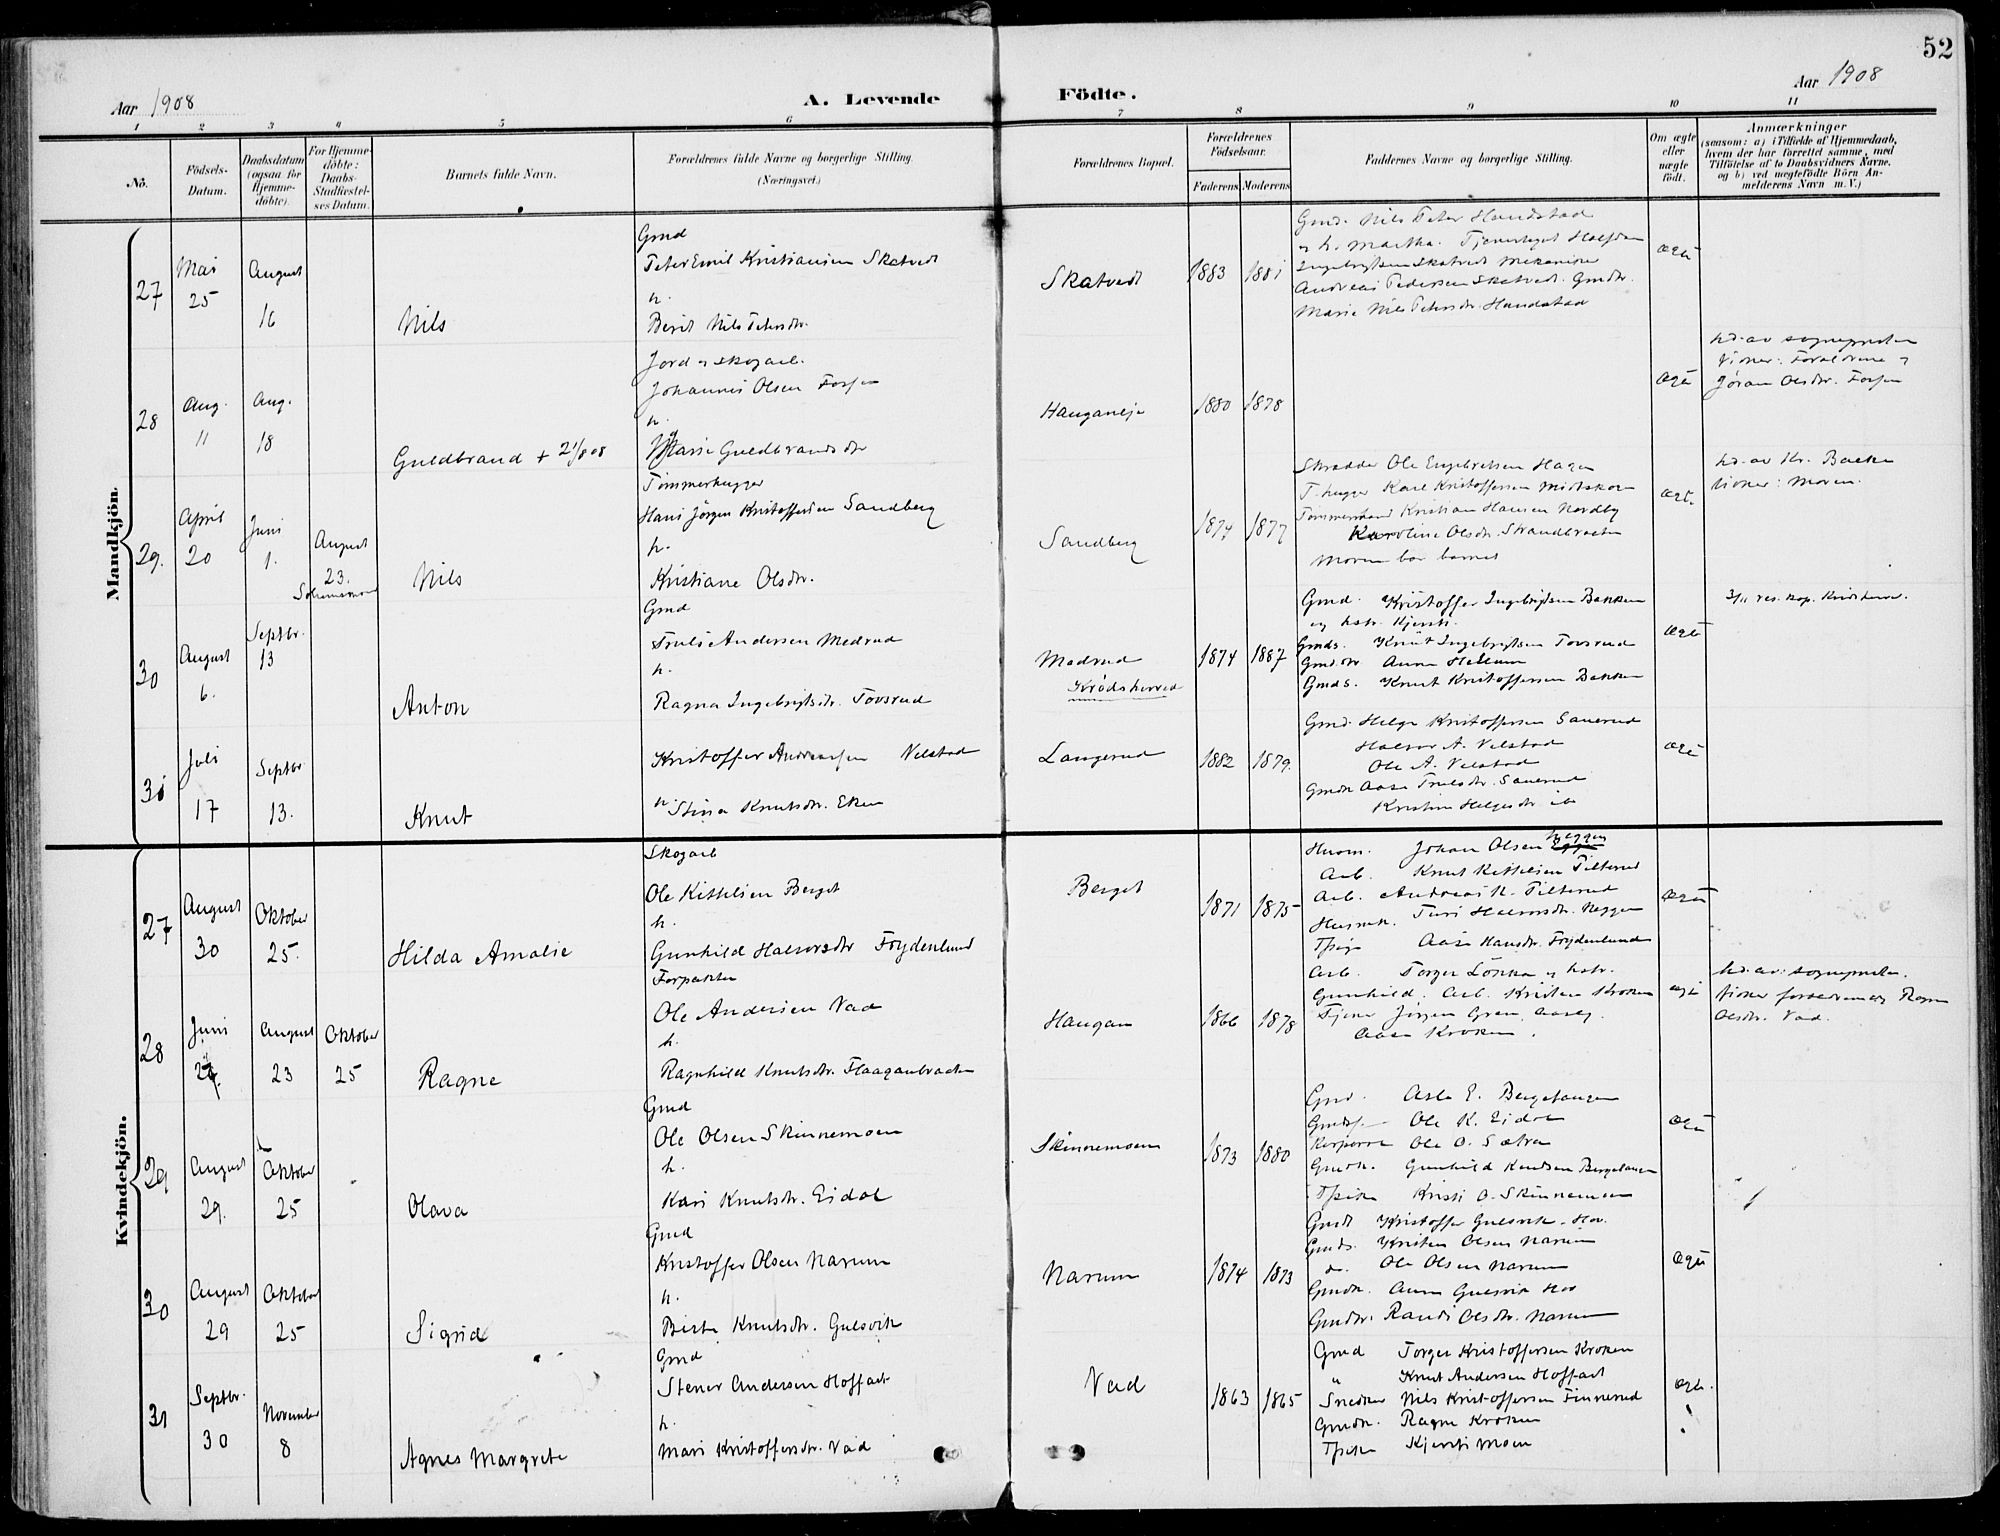 52
Aar 1908
A. Levende Födte.
Aar 1908
1 2 3 4 5 6 7 8 9 10 11
No.
Födsels-Datum.
Daabsdatum (ogsaa for Hjemmedöbte).
For Hjemmedöbte: Daabs-Stadfæstelses Datum.
Barnets fulde Navn.
Forældrenes fulde Navne og borgerlige Stilling.
(Næringsvei.)
Forældrenes Bopæl.
Forældrenes Födselsaar.
Faderens Moderens
Faddernes Navne og borgerlige Stilling.
Om ægte eller uægte födt.
Anmærkninger
(saasom: a) i Tilfælde af Hjemmedaab, hvem der har forrettet samme, med Tilföielse af to Daabsvidners Navne, og b) ved uægtefödte Börn Anmelderens Navn m. V.)
Mandkjön.
27
Mai 25
August 16
Nils
Gmd
Peter Emil Kristiansen Skatvedt
h.
Berit Nils Petersdtr.
Skatvedt
1883 1881
Gmd. Nils Peter Haudstad
og h. Martha. Halfdan
Ingebrigtsen Skatvedt
Andreas Pedersen Skatvedt. Gmdtr.
Marie Nils Petersdtr. Haudstad
ægte
28
Aug. 11
Aug. 18
Guldbrand + 21/8 08
Jord og skogarb.
Johannes Olsen Forsen
h.
Marie Guldbrandsdtr
Hauganeje
1880 1878
ægte
hd. av sognepresten
Jøran Olsdtr. Forsen
29.
April 20
Juni 1.
August 23.
Nils
Tømmerhugger
Hans Jörgen Kristoffersen Sandberg
h.
Kristiane Olsdtr.
Sandberg
1874 1877
Skrædder Ole Engebretsen Hagen
T. hugger Karl Kristoffersen Midtskog
Kristian Hansen Nordby
Karoline Olsdtr. Strandbraaten
Moren bar barnet
ægte
hd. av Kr. Bakke
moren.
30
August 6.
Septbr. 13
Anton
Gmd
Truls Andersen Medrud
h.
Ragna Ingebrigtsdtr. Tovsrud
Medrud
Krødsherred
1874 1887
Gmd. Kristoffer Ingebrigtsen Bakken
og hstr. Kjersti.
Gmds. Knut Ingebrigtsen Tovsrud
Gmd.dtr Anna
Gmds. Knut Kristoffersen Bakken
ægte
31
Juli 17
Septbr. 13.
Knut
Kristoffer Andreassen Velstad
h. Stina Knutsdtr. Eken
Langerud
1882 1879.
Gmd. Helge Kristoffersen Sauerud
Halvor A. Velstad
Ole A. Velstad
Gmdk Aase Trulsdtr. Sauerud
Kristine Helgesdtr
ægte
Kvindekjön.
27
August 30
Oktober 25.
Hilda Amalie
Skogarb
Ole Kittelsen Berget
h.
Gunhild Halvorsdtr Frydenlund
Berget
1871 1875
Husm. Johan Olsen Heggen
Arb. Knut Kittelsen Tilterud
Arb. Andreas K. Tilterud
Turi Heggen
Tpige Aase Hansdtr. Frydenlund
ægte
28
Juni 27.
August 23
Oktober 25
Ragne
Forpakter
Ole Andersen Vad
h.
Ragnhild Knutsdtr. Flaaganbraaten
Haugan
1866 1878
Arb. Torger og hstr.
Gunhild. Arb. Kristen Kroken
Tjener Jörgen
Aase Kroken.
ægte
hd. av: sognepresten.
Ragne
Olsdtr. Vad.
29
August 29.
Oktober 25
Olava
Gmd
Ole Olsen Skinnemoen
h.
Kari Knutsdtr. Eidal
Skinnemoen
1873 1880
Gmd. Asle E. Bergehaugen
Gmds. Ole K. Eidal
Korporal Ole O. Sætra
Gmdk. Gunhild Knudsen
Tpike Kristi O. Skinnemoen
ægte
30
August 29
Oktober 25
Sigrid
Gmd
Kristoffer Olsen Narum
h.
Berte Knutsdtr. Gulsvik
Narum
1874 1873
Gmd Kristoffer Gulsvik. Hov.
Gmds. Kristen Olsen Narum
do. Ole Olsen Narum
Gmdk. Anna Gulsvik Hov
Gmdtr. Randi Olsdtr. Narum
ægte
31
Septbr. 30
November 8
Agnes Margrete
Gmd
Stener Andersen Hoffart
h.
Mari Kristoffersdtr. Vad
Vad
1863 1865
Gmd Torger Kristoffersen Kroken
" Knut Andersen Hoffart
Snedker Nils Kristoffersen Finnerud
Gmdk. Ragne Kroken
Tpike Kjersti Moen
ægte.